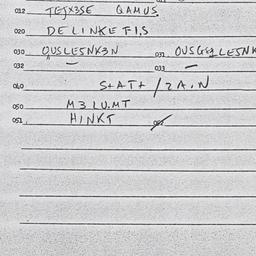 012 TEJX3SE QAMUS
020 DELINKETIS
030 QUSLESNK3N 031
032 033
040 S+AT+ / 2A.N
050 M3LU.MT
051 HINKT